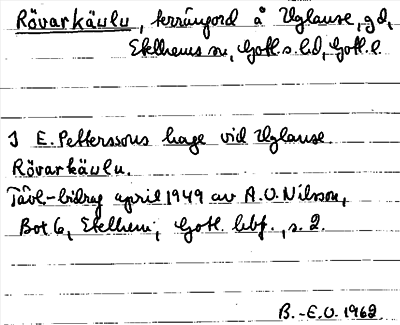 Rövarkäulu, terrängord å Uglause, gd,
Etelhems sn, Gotl. s. hd, Gotl. l.
I E. Petterssons hage vid Uglause
Rövarkäulu.
Tävl.-bidrag april 1949 av A.O. Nilsson,
Bot 6, Etelhem, Gotl. , s. 2.
B.-E.O. 1962